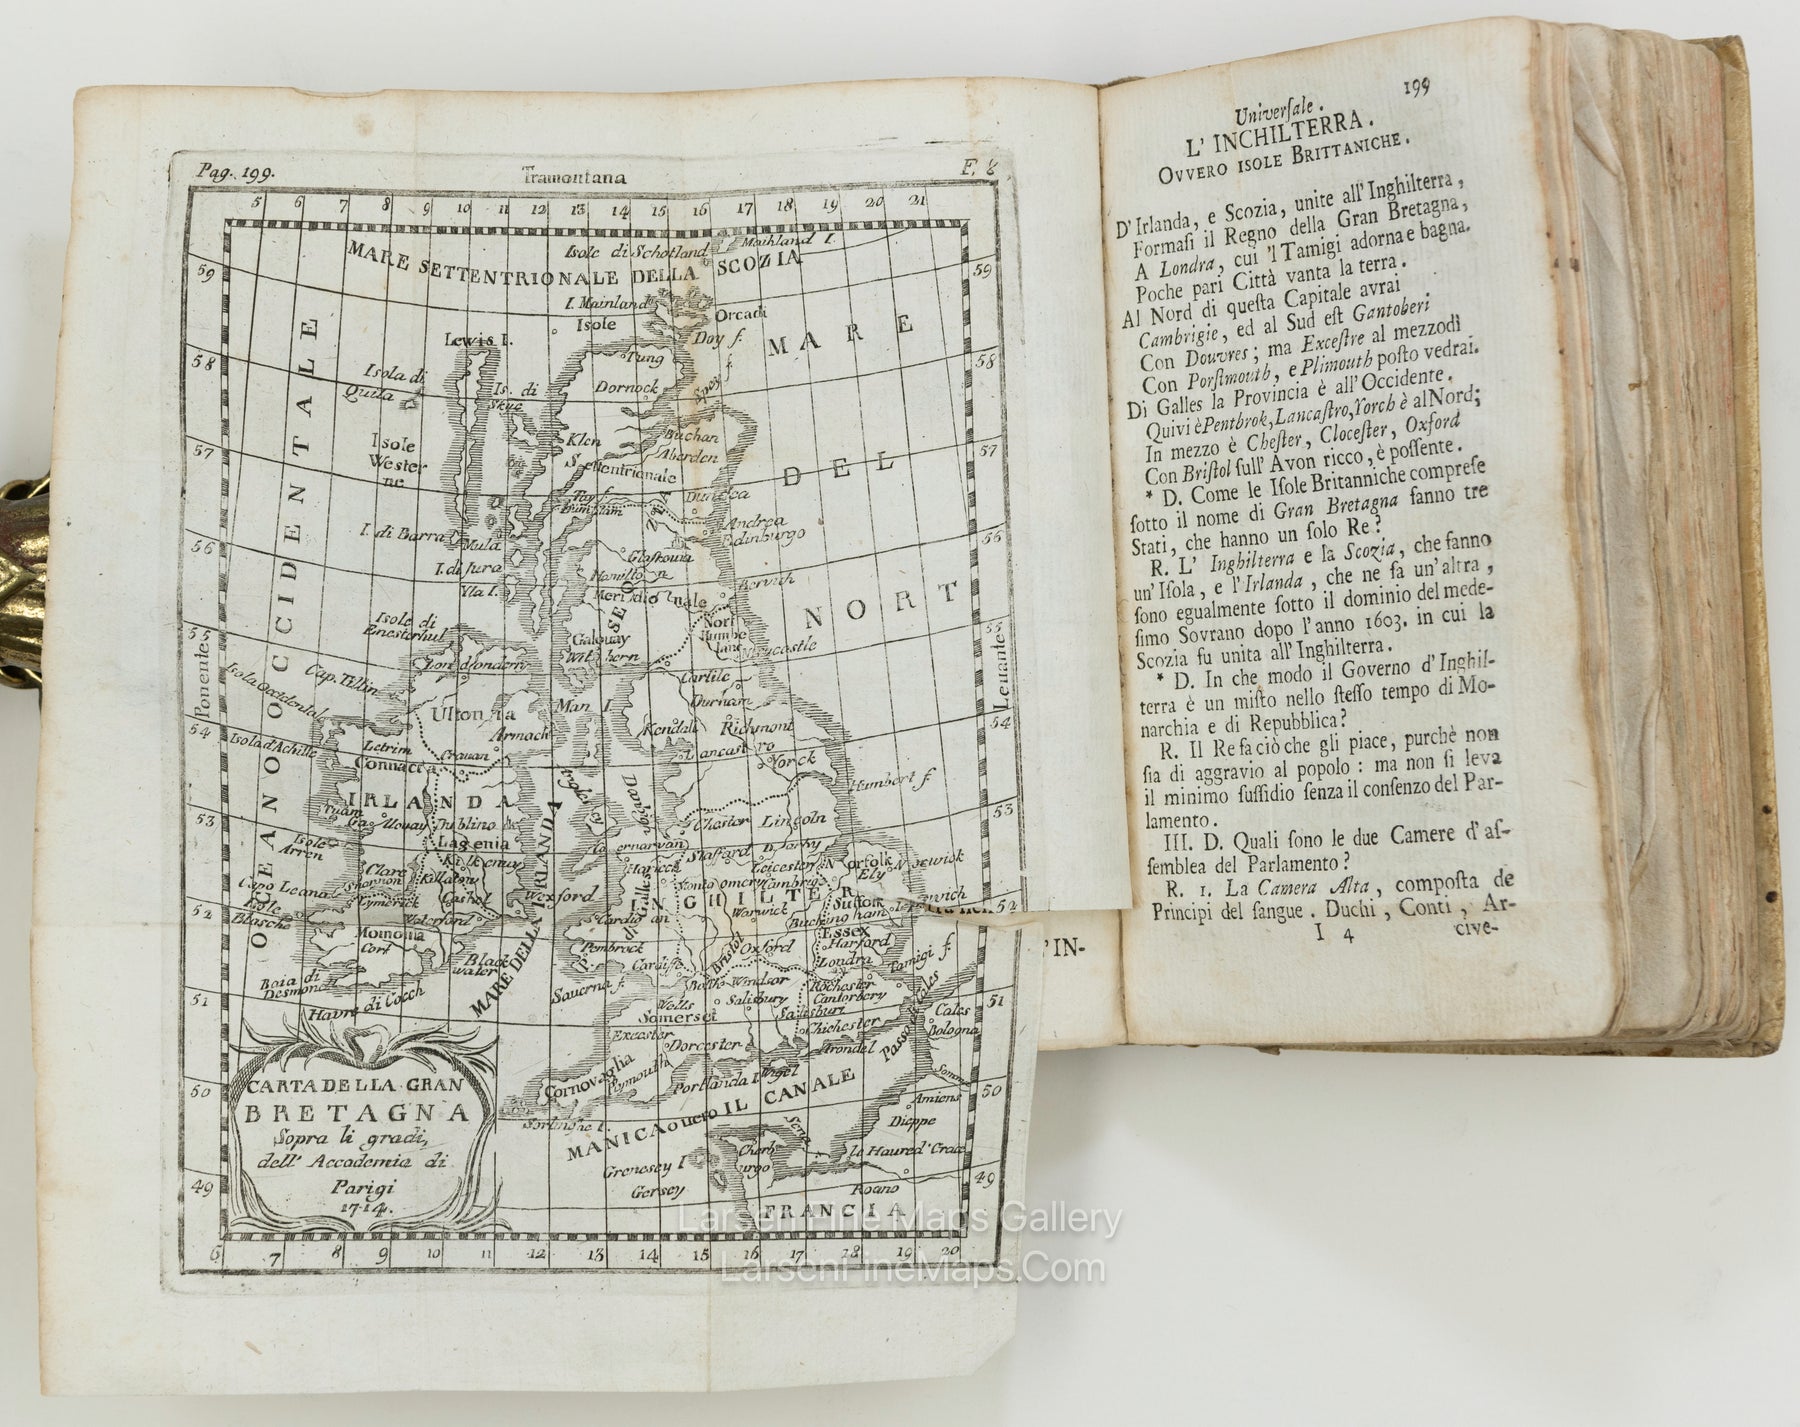 Pag. 199.
Tramontana
5 6 7 8 9 10 11 12 13 14 15 16 17 18 19 20 21
MARE SETTENTRIONALE DELLA SCOZIA
Isole di Schotland
Mainland I.
59
59
I. Mainland
Isole
Orcadi
Lewis I.
Doy f.
MARE
Tung
58
58
Isola di
Quila
Is. di
Skye
Dornock
Spey f.
Buchan
Isole
Wester
ne
Klen
Aberden
57
57
Settentrionale
DEL
Tay f.
Andrea
Edinburgo
I. di Barra
Mula
56
56
Glaskouu
I. di Jura
Hamillo n
Yla I.
Meridio nale
Bervich
NORT
Isole di
Enesterhul
Galouay
Withern
Nort
Humbe
land
Neycastle
55
55
Ponente
Leuante
Isola Occidental
Cap. Tellin
Londonderry
Carlile
Durham
Ultonia
Man I
Armach
Kendale
Richmont
54
54
Isola d'Achille
Letrim
Crauan
Lancastro
Connacia
Yorck
Humbert f.
OCEANO OCCIDENTALE
IRLANDA
53
53
Tuam
Gallouay
Dublino
Chester
Lincoln
Lagenia
Isole
Arren
Kilkenny
Caernarvan
Stafford
Derby
Clare
Shannon
Killalou
Harlech
Leicester
Norfolk
Ely
Norewick
Capo Leane
Lymerick
Cashel
Wexford
INGHILTER RA
Cambrige
52
52
Isole
Blasche
Waterford
Cardig an
Warwick
Buckingham
Suffolk
Momonia
Cort
Pembrock
Oxford
Essex
Harford
Londra
Tamigi f.
Baia di
Desmond
Black
water
Cardiffe
Bristol
MARE DELLA IRLANDA
Saverna f.
Bath
Windsor
Rochester
Cantorbery
51
51
Havre di Coech
Wells
Salisbury
Somerset
Chichester
Cales
Bologna
Excester
Dorcester
Arondel
Passo di Cales
Cornovaglia
Plymouth
Portlanda I
Wigel
Somme
50
50
Sorlinghe I.
MANICA ouero IL CANALE
Amiens
Dieppe
Sena
Grenesey I
Cherb
urgo
le Haured' Grace
49
49
Gersey
Roano
FRANCIA
CARTA DELLA GRAN
BRETAGNA
Sopra li gradi,
dell' Accademia di
Parigi
1714.
6 7 8 9 10 11 12 13 14 15 16 17 18 19 20
'IN-
Universale. 199
L' INCHILTERRA.
OVVERO ISOLE BRITTANICHE.
D' Irlanda, e Scozia, unite all' Inghilterra,
Formasi il Regno della Gran Bretagna,
A Londra, cui 'l Tamigi adorna e bagna.
Poche pari Città vanta la terra.
Al Nord di questa Capitale avrai
Cambrigie, ed al Sud est Gantoberi
Con Douvres; ma Excestre al mezzodì
Con Porstmouth, e Plimouth posto vedrai.
Di Galles la Provincia è all' Occidente.
Quivi è Pentbrok, Lancastro, Yorch è al Nord;
In mezzo è Chester, Clocester, Oxford
Con Bristol sull' Avon ricco, è possente.
* D. Come le Isole Britanniche comprese
sotto il nome di Gran Bretagna fanno tre
Stati, che hanno un solo Re?
R. L' Inghilterra e la Scozia, che fanno
un' Isola, e l'Irlanda, che ne fa un' altra,
sono egualmente sotto il dominio del mede-
simo Sovrano dopo l'anno 1603. in cui la
Scozia fu unita all' Inghilterra.
* D. In che modo il Governo d' Inghil-
terra è un misto nello stesso tempo di Mo-
narchia e di Repubblica?
R. Il Re fa ciò che gli piace, purchè non
sia di aggravio al popolo: ma non si leva
il minimo sussidio senza il consenzo del Par-
lamento.
III. D. Quali sono le due Camere d' as-
semblea del Parlamento?
R. 1. La Camera Alta, composta de
Principi del sangue. Duchi, Conti, Ar-
I 4 cive-
Larsen Fine Maps Gallery
LarsenFineMaps.Com